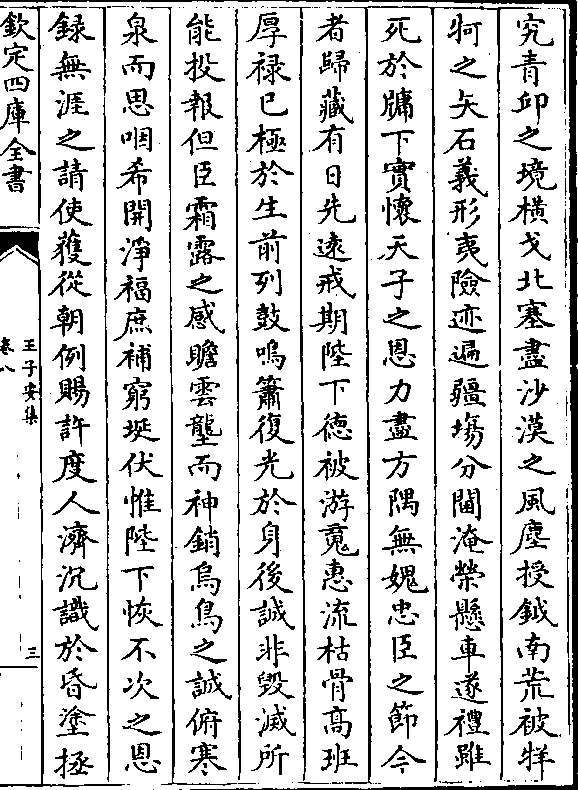 究青邱之境橫戈北塞盡沙漠之風塵授鉞南荒被牂
牁之矢石義形夷險迹遍疆塲分閫淹榮懸車遂禮雖
死於牖下實懷天子之恩力盡方隅無媿忠臣之節今
者歸藏有日先遠戒期陛下徳被游䰟惠流枯骨高班
厚禄已極於生前列鼓鳴簫復光於身後誠非毀滅所
能投報但臣霜露之感瞻雲壟而神銷烏鳥之誠俯寒
泉而思咽希開淨福庶補窮埏伏惟陛下恢不次之恩
録無涯之請使獲從朝例賜許度人濟沉識於昏塗拯
欽定四庫全書
王子安集
卷八
三